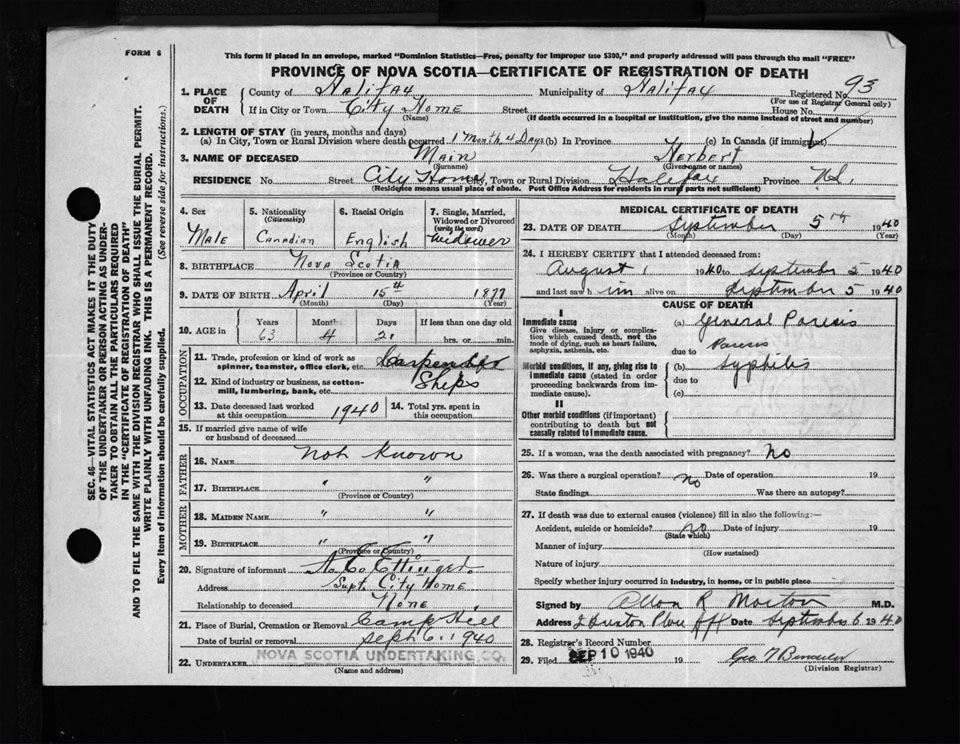 FORM 6
This form if placed in an envelope, marked "Dominion Statistics—Free, penalty for improper use $300," and properly addressed will pass through the mail "FREE"
PROVINCE OF NOVA SCOTIA—CERTIFICATE OF REGISTRATION OF DEATH
SEC. 46—VITAL STATISTICS ACT MAKES IT THE DUTY
OF THE UNDERTAKER OR PERSON ACTING AS UNDER-
TAKER TO OBTAIN ALL THE PARTICULARS REQUIRED
IN THE "CERTIFICATE OF REGISTRATION OF DEATH"
AND TO FILE THE SAME WITH THE DIVISION REGISTRAR WHO SHALL ISSUE THE BURIAL PERMIT.
WRITE PLAINLY WITH UNFADING INK. THIS IS A PERMANENT RECORD.
Every item of information should be carefully supplied. (See reverse side for instructions.)
1. PLACE OF DEATH County of Halifax Municipality of Halifax Registered No. 93
(For use of Registrar General only)
If in City or Town City Home Street House No.
(Name) (If death occurred in a hospital or institution, give the name instead of street and number)
2. LENGTH OF STAY (in years, months and days)
(a) In City, Town or Rural Division where death occurred 1 Month 4 Days (b) In Province (c) In Canada (if immigrant)
3. NAME OF DECEASED Main Herbert
(Surname) (Given name or names)
RESIDENCE No. Street City Home City, Town or Rural Division Halifax Province N.S.
(Residence means usual place of abode. Post Office Address for residents in rural parts not sufficient)
4. Sex Male
5. Nationality (Citizenship) Canadian
6. Racial Origin English
7. Single, Married, Widowed or Divorced (write the word) Widower
8. BIRTHPLACE Nova Scotia
(Province or Country)
9. DATE OF BIRTH April 15th 1877
(Month) (Day) (Year)
10. AGE in Years Months Days If less than one day old
63 4 21 hrs. or min.
OCCUPATION
11. Trade, profession or kind of work as spinner, teamster, office clerk, etc. Carpenter
12. Kind of industry or business, as cotton-mill, lumbering, bank, etc. Ships
13. Date deceased last worked at this occupation 1940
14. Total yrs. spent in this occupation
15. If married give name of wife or husband of deceased
FATHER
16. NAME Not Known
17. BIRTHPLACE " "
(Province or Country)
MOTHER
18. MAIDEN NAME " "
19. BIRTHPLACE " "
(Province or Country)
20. Signature of informant Ettinger
Address Supt. City Home
Relationship to deceased None
21. Place of Burial, Cremation or Removal Camp Hill
Date of burial or removal Sept 6. 1940
22. UNDERTAKER NOVA SCOTIA UNDERTAKING CO.
(Name and Address)
MEDICAL CERTIFICATE OF DEATH
23. DATE OF DEATH September 5th 1940
(Month) (Day) (Year)
24. I HEREBY CERTIFY that I attended deceased from:
August 1 1940 to September 5 1940
and last saw h im alive on September 5 1940
CAUSE OF DEATH
I
Immediate cause (a) General Paresis
Give disease, injury or complication which caused death, not the mode of dying, such as heart failure, asphyxia, asthenia, etc.
due to Paresis
Morbid conditions, if any, giving rise to immediate cause (stated in order proceeding backwards from immediate cause).
(b) Syphilis
due to
(c)
II
Other morbid conditions (if important) contributing to death but not causally related to immediate cause.
25. If a woman, was the death associated with pregnancy? No
26. Was there a surgical operation? No Date of operation 19
State findings Was there an autopsy?
27. If death was due to external causes (violence) fill in also the following:—
Accident, suicide or homicide? no Date of injury 19
(State which)
Manner of injury
(How sustained)
Nature of injury
Specify whether injury occurred in industry, in home, or in public place
Signed by Allan R Morton M.D.
Address Date September 6 1940
28. Registrar's Record Number
29. Filed SEP 10 1940 19 Geo
(Division Registrar)